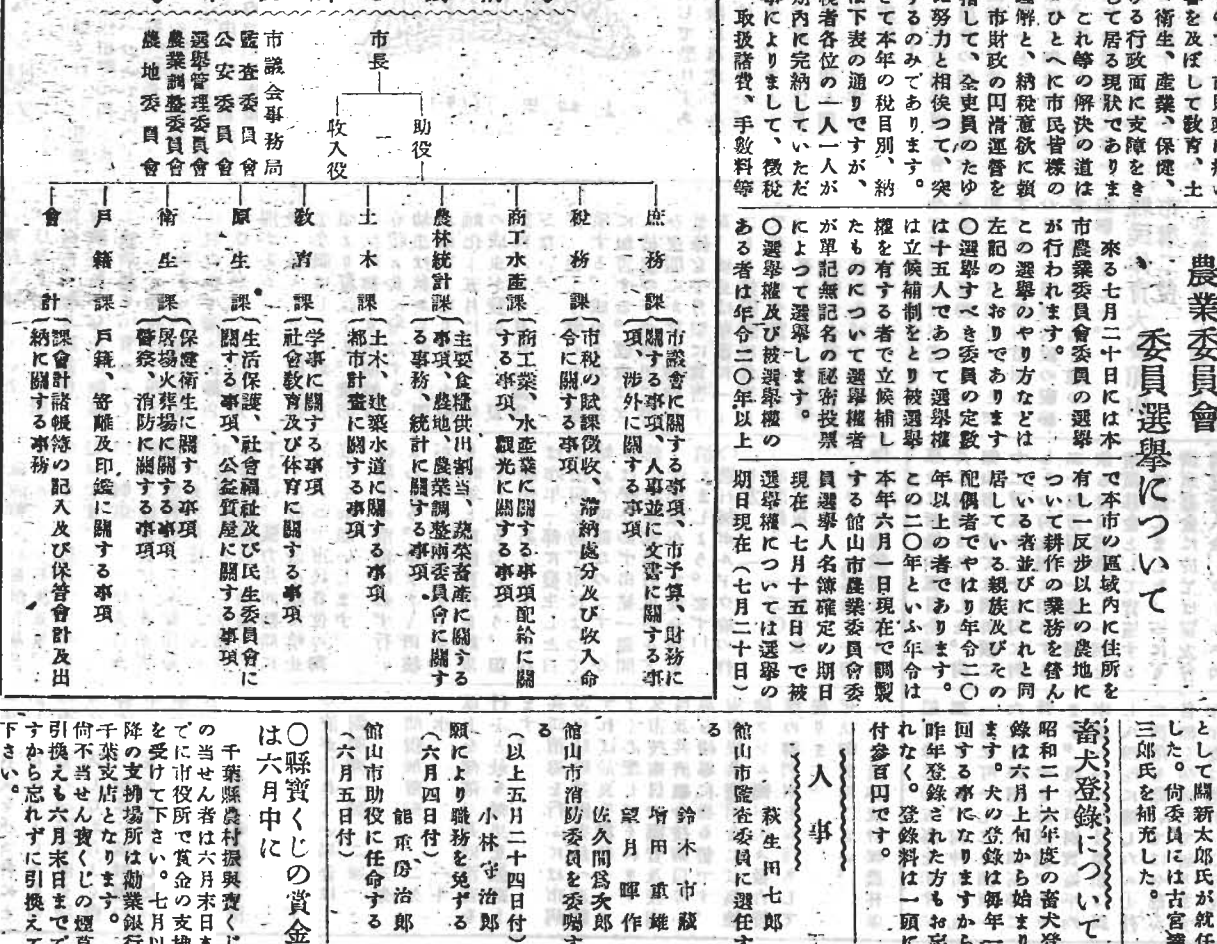 響を及ぼして教育、土
衛生、産業、保健、
る行政面に支障をき
して居る現狀でありま
これ等の解決の道は
ひとへに市民皆様の
解と、納税意欲に頼
市財政の円滑運營を
指して、全吏員のたゆ
努力と相俟つて、突
するのみであります。
さて本年の税目別、納
は下表の通りですが、
税者各位の一人一人が
期内に完納していただ
事によりまして、徴税
取扱諸費、手數料等
農業委員會
委員選擧について
來る七月二十日には本
市農業委員會委員の選擧
が行われます。
この選擧のやり方などは
左記のとおりであります
○選擧すべき委員の定數
は十五人であつて選擧權
は立候補制をとり被選擧
權を有する者で立候補し
たものについて選擧權者
が單記無記名の祕密投票
によつて選擧します。
○選擧權及び被選擧權の
ある者は年令二〇年以上
で本市の區域内に住所を
有し一反步以上の農地に
ついて耕作の業務を營ん
でいる者並びにこれと同
居している親族及びその
配偶者でやはり年令二〇
年以上の者であります。
この二〇年といふ年令は
本年六月一日現在で調製
する館山市農業委員會委
員選擧人名簿確定の期日
現在(七月十五日)で被
選擧權については選擧の
期日現在(七月二十日)
市長
助役
收入役
市議会事務局
監査委員會
公安委員會
選擧管理委員會
農業調整委員會
農地委員會
庶務課
市議會に關する事項、市予算、財務に
關する事項、人事並に文書に關する事
項、涉外に關する事項
税務課
市税の賦課徴收、滯納處分及び收入命
令に關する事項
商工水産課
商工業、水産業に關する事項配給に關
する事項、觀光に關する事項
農林統計課
主要食糧供出割当、蔬菜畜産に關する
事項、農地、農業調整兩委員會に關す
る事務、統計に關する事項
土木課
土木、建築水道に關する事項
都市計畫に關する事項
教育課
学事に關する事項
社會教育及び体育に關する事項
厚生課
生活保護、社會福祉及び民生委員會に
關する事項、公益質屋に關する事項
衛生課
保健衛生に關する事項
屠場火葬場に關する事項
警察、消防に關する事項
戸籍課
戸籍、寄離及印鑑に關する事項
會計課
會計諸帳簿の記入及び保管會計及出
納に關する事務
として關新太郎氏が就任
した。尙委員には古宮
三郎氏を補充した。
畜犬登録について
昭和二十六年度の畜犬登
録は六月上旬から始まり
ます。犬の登録は毎年一
回する事になりますから
昨年登録された方もお忘
れなく。登録料は一頭に
付參百円です。
人事
萩生田七郎
館山市監査委員に選任す
る
鈴木市藏
増田重雄
望月暉作
佐久間爲次郎
館山市消防委員を委囑す
る
(以上五月二十四日付)
小林守治郎
願により職務を免ずる
(六月四日付)
能重房治郎
館山市助役に任命する
(六月五日付)
○縣寶くじの賞金
は六月中に
千葉縣農村振興寶くじ
の当せん者は六月末日ま
でに市役所で賞金の支拂
を受けて下さい。七月以
降の支拂場所は勸業銀行
千葉支店となります。
尙不当せん寶くじの煙草
引換えも六月末日までで
すから忘れずに引換えて
下さい。